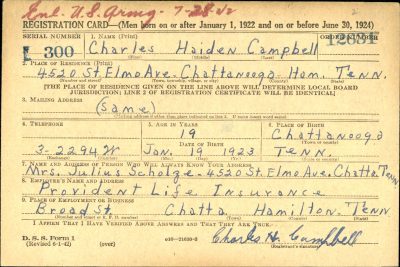 Enl. U.S. Army - 7-28-42
REGISTRATION CARD—(Men born on or after January 1, 1922 and on or before June 30, 1924)
SERIAL NUMBER 1. NAME (Print) ORDER NUMBER
L 300 Charles Haiden Campbell 12631
(First) (Middle) (Last)
2. PLACE OF RESIDENCE (Print)
4520 St. Elmo Ave. Chattanooga Ham. Tenn.
(Number and street) (Town, township, village, or city) (County) (State)
[THE PLACE OF RESIDENCE GIVEN ON THE LINE ABOVE WILL DETERMINE LOCAL BOARD
JURISDICTION; LINE 2 OF REGISTRATION CERTIFICATE WILL BE IDENTICAL]
3. MAILING ADDRESS
(Same)
[Mailing address if other than place indicated on line 2. If same insert word same]
4. TELEPHONE 5. AGE IN YEARS 6. PLACE OF BIRTH
19 Chattanooga
DATE OF BIRTH (Town or county)
3-2294W Jan. 19 1923 Tenn.
(Exchange) (Number) (Mo.) (Day) (Yr.) (State or country)
7. NAME AND ADDRESS OF PERSON WHO WILL ALWAYS KNOW YOUR ADDRESS
Mrs. Julius Scholze - 4520 St. Elmo Ave. Chatta. Tenn
8. EMPLOYER'S NAME AND ADDRESS
Provident Life Insurance
9. PLACE OF EMPLOYMENT OR BUSINESS
Broad St. Chatta. Hamilton. Tenn
(Number and street or R. F. D. number) (Town) (County) (State)
I AFFIRM THAT I HAVE VERIFIED ABOVE ANSWERS AND THAT THEY ARE TRUE.
D. S. S. Form 1
(Revised 6-1-42) (over) 16—21630-2 Charles H. Campbell
(Registrant's signature)